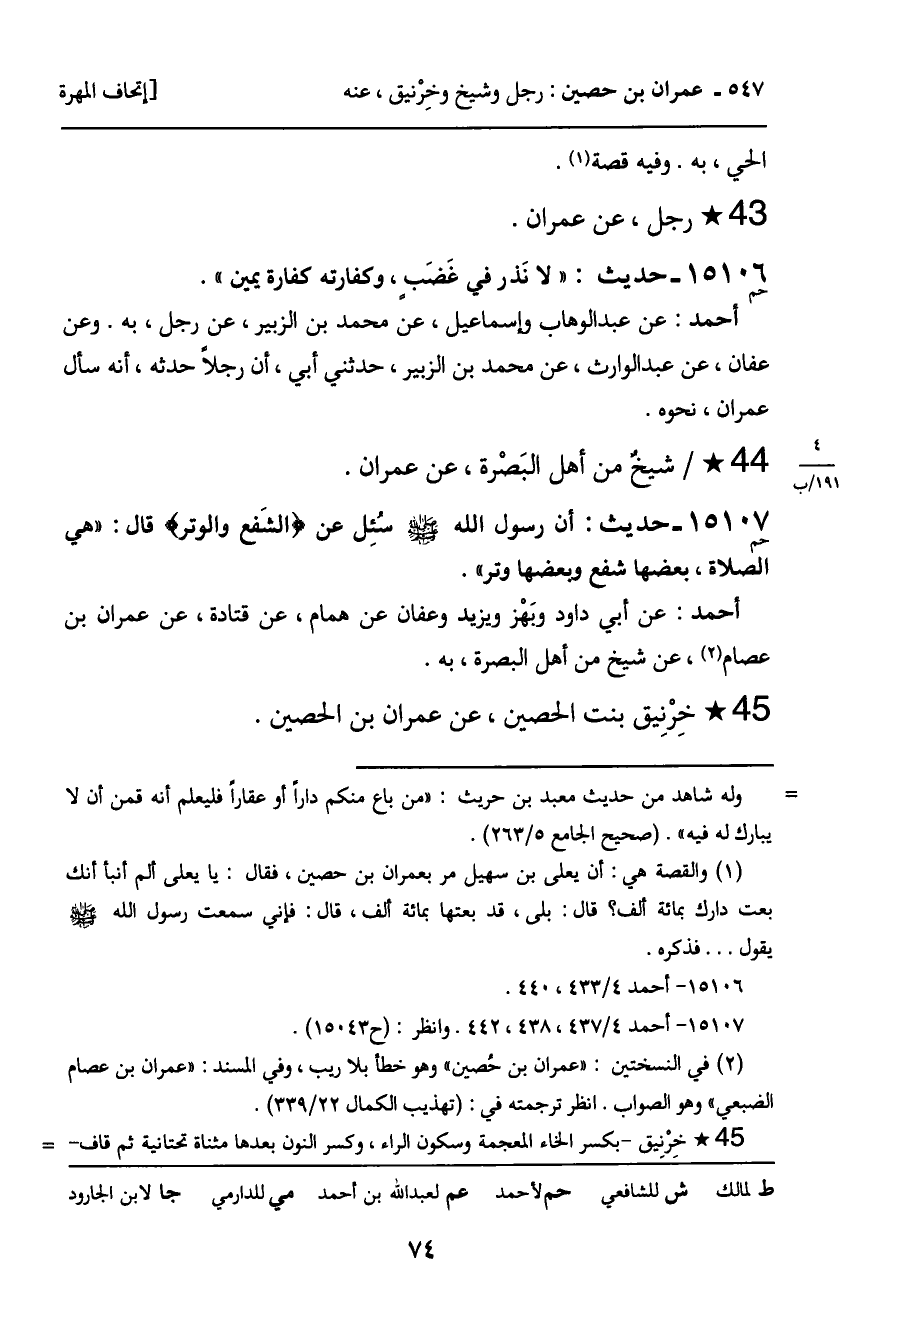 ٥٤٧ ـ عمران بن حصين : رجل وشيخ وخِرْنيق ، عنه [إتحاف المهرة
الحي ، به . وفيه قصة(١) .
43 ★ رجل ، عن عمران .
١٥١٠٦ ـ حديث : « لا نَذر في غَضَبٍ ، وكفارته كفارة يمين » .
حم
أحمد : عن عبدالوهاب وإسماعيل ، عن محمد بن الزبير ، عن رجل ، به . وعن
عفان ، عن عبدالوارث ، عن محمد بن الزبير ، حدثني أبي ، أن رجلاً حدثه ، أنه سأل
عمران ، نحوه .
44 ★ / شيخٌ من أهل البَصْرة ، عن عمران .
٤
١٩١/ب
١٥١٠٧ ـ حديث : أن رسول الله ﷺ سُئِل عن ﴿الشَفع والوتر﴾ قال : «هي
حم
الصلاة ، بعضها شفع وبعضها وتر» .
أحمد : عن أبي داود وبَهْز ويزيد وعفان عن همام ، عن قتادة ، عن عمران بن
عصام(٢) ، عن شيخ من أهل البصرة ، به .
45 ★ خِرْنِيق بنت الحصين ، عن عمران بن الحصين .
= وله شاهد من حديث معبد بن حريث : «من باع منكم داراً أو عقاراً فليعلم أنه قمن أن لا
يبارك له فيه» . (صحيح الجامع ٢٦٣/٥) .
(١) والقصة هي : أن يعلى بن سهيل مر بعمران بن حصين ، فقال : يا يعلى ألم أنبأ أنك
بعت دارك بمائة ألف؟ قال : بلى ، قد بعتها بمائة ألف ، قال : فإني سمعت رسول الله ﷺ
يقول ... فذكره .
١٥١٠٦- أحمد ٤٣٣/٤ ، ٤٤٠ .
١٥١٠٧- أحمد ٤٣٧/٤ ، ٤٣٨ ، ٤٤٢ . وانظر : (ح١٥٠٤٣) .
(٢) في النسختين : «عمران بن حُصين» وهو خطأ بلا ريب ، وفي المسند : «عمران بن عصام
الضبعي» وهو الصواب . انظر ترجمته في : (تهذيب الكمال ٣٣٩/٢٢) .
45 ★ خِرْنِيق -بكسر الخاء المعجمة وسكون الراء ، وكسر النون بعدها مثناة تحتانية ثم قاف- =
ط لمالك ش للشافعي حم لأحمد عم لعبدالله بن أحمد مي للدارمي جا لابن الجارود
٧٤